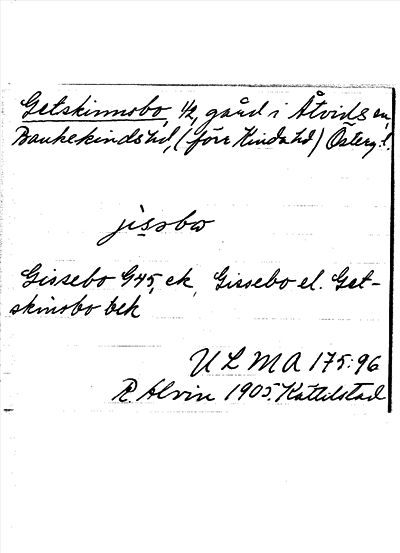 Getskinnsbo, 1/2, gård i Åtvids sn,
Bankekinds hd, (förr Kinda hd) Östergl.
jissbo
Gissebo G45, ek, Gissebo el. Get-
skinsbo bek
ULMA 175:96
R. Alvin 1905. Kättilstad